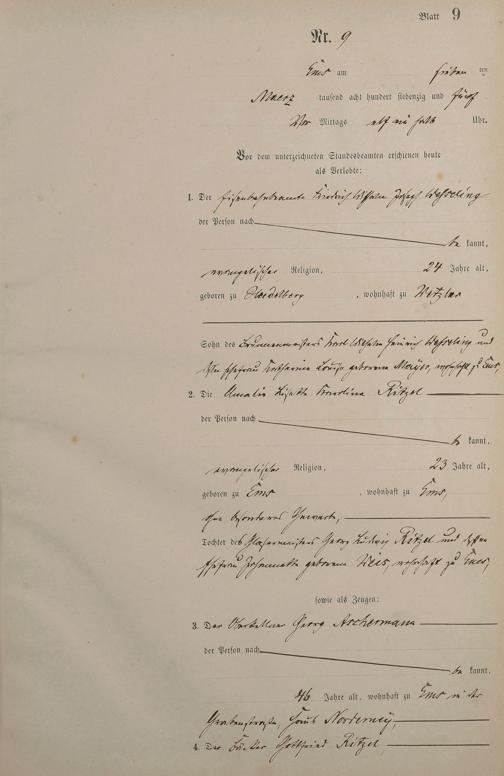 Blatt 9
Nr. 9
Ems am sieben ten
Maerz tausend acht hundert siebenzig und fünf
Vor Mittags elf ein halb Uhr.
Vor dem unterzeichneten Standesbeamten erschienen heute
als Verlobte:
1. Der Eisenbahnbeamte Friedrich Wilhelm Joseph
der Person nach
be kannt,
evangelischer Religion, 24 Jahre alt,
geboren zu Heidelberg , wohnhaft zu Wetzlar
Sohn des Brunnenmeisters Karl Wilhelm Heinrich und
Ehefrau Katharina Louise geborene Mayer, wohnhaft zu Ems,
2. Die Amalie Lisette Karolina Ritzel
der Person nach
be kannt,
evangelischer Religion, 23 Jahre alt,
geboren zu Ems , wohnhaft zu Ems,
ohne besonderes Gewerbe,
Tochter des Glasermeisters Georg Ludwig Ritzel und dessen
Ehefrau Johannetta geborene Weis, wohnhaft zu Ems,
sowie als Zeugen:
3. Der Oberkellner Georg Aschermann
der Person nach
be kannt,
46 Jahre alt, wohnhaft zu Ems in der
Grabenstraße, Haus Norderney,
4. Der Gottfried Ritzel,